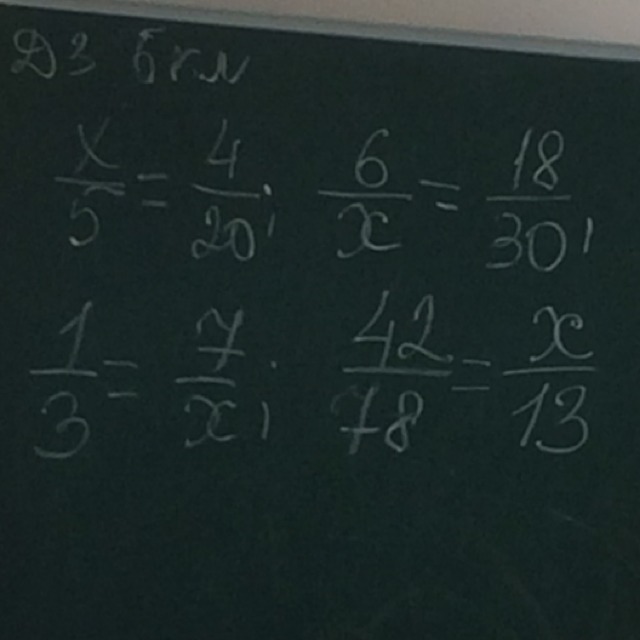 ДЗ 6 кл
x/5 = 4/20; 6/x = 18/30;
1/3 = 7/x; 42/78 = x/13